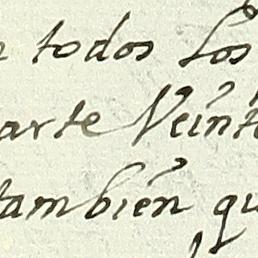 todos los
arte Veint
también qu